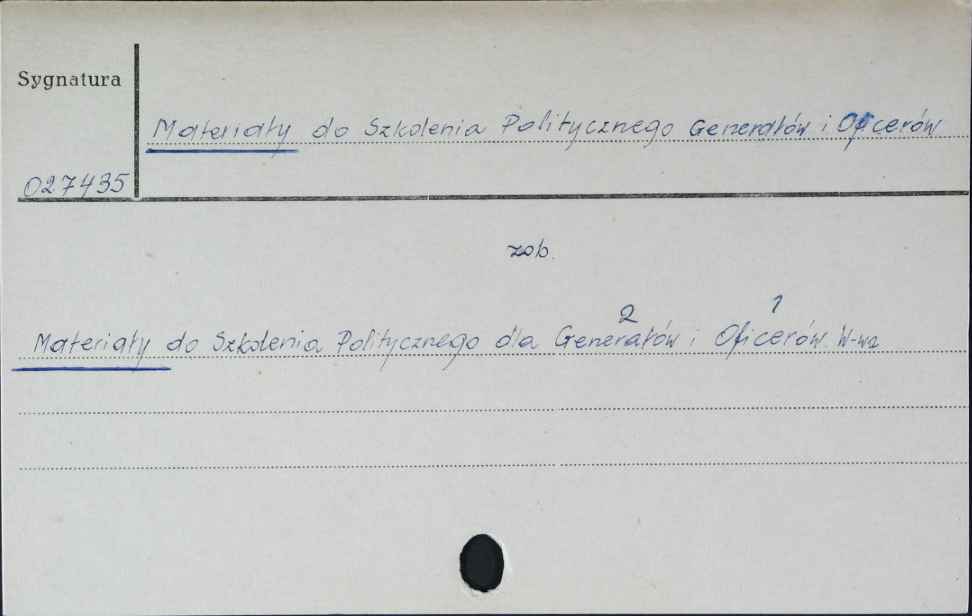 Sygnatura
Materiały do Szkolenia Politycznego Generałów i Oficerów
027435
zob.
2 1
Materiały do Szkolenia Politycznego dla Generałów i Oficerów. W-wa